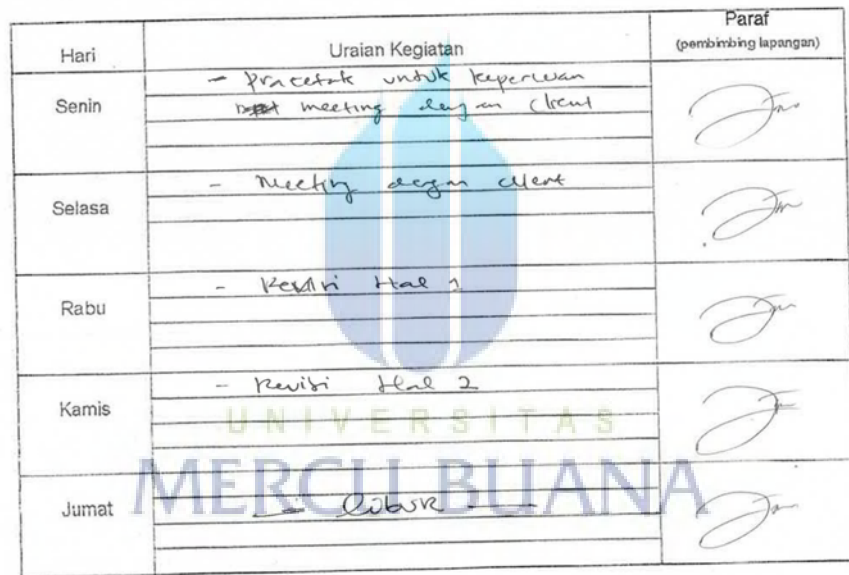 Hari Uraian Kegiatan Paraf
(pembimbing lapangan)
Senin - Pracetak untuk keperluan
meeting dengan client
Selasa - Meeting dengan client
Rabu - Revisi Hal 1
Kamis - Revisi Hal 2
UNIVERSITAS
MERCU BUANA
Jumat - Libur -